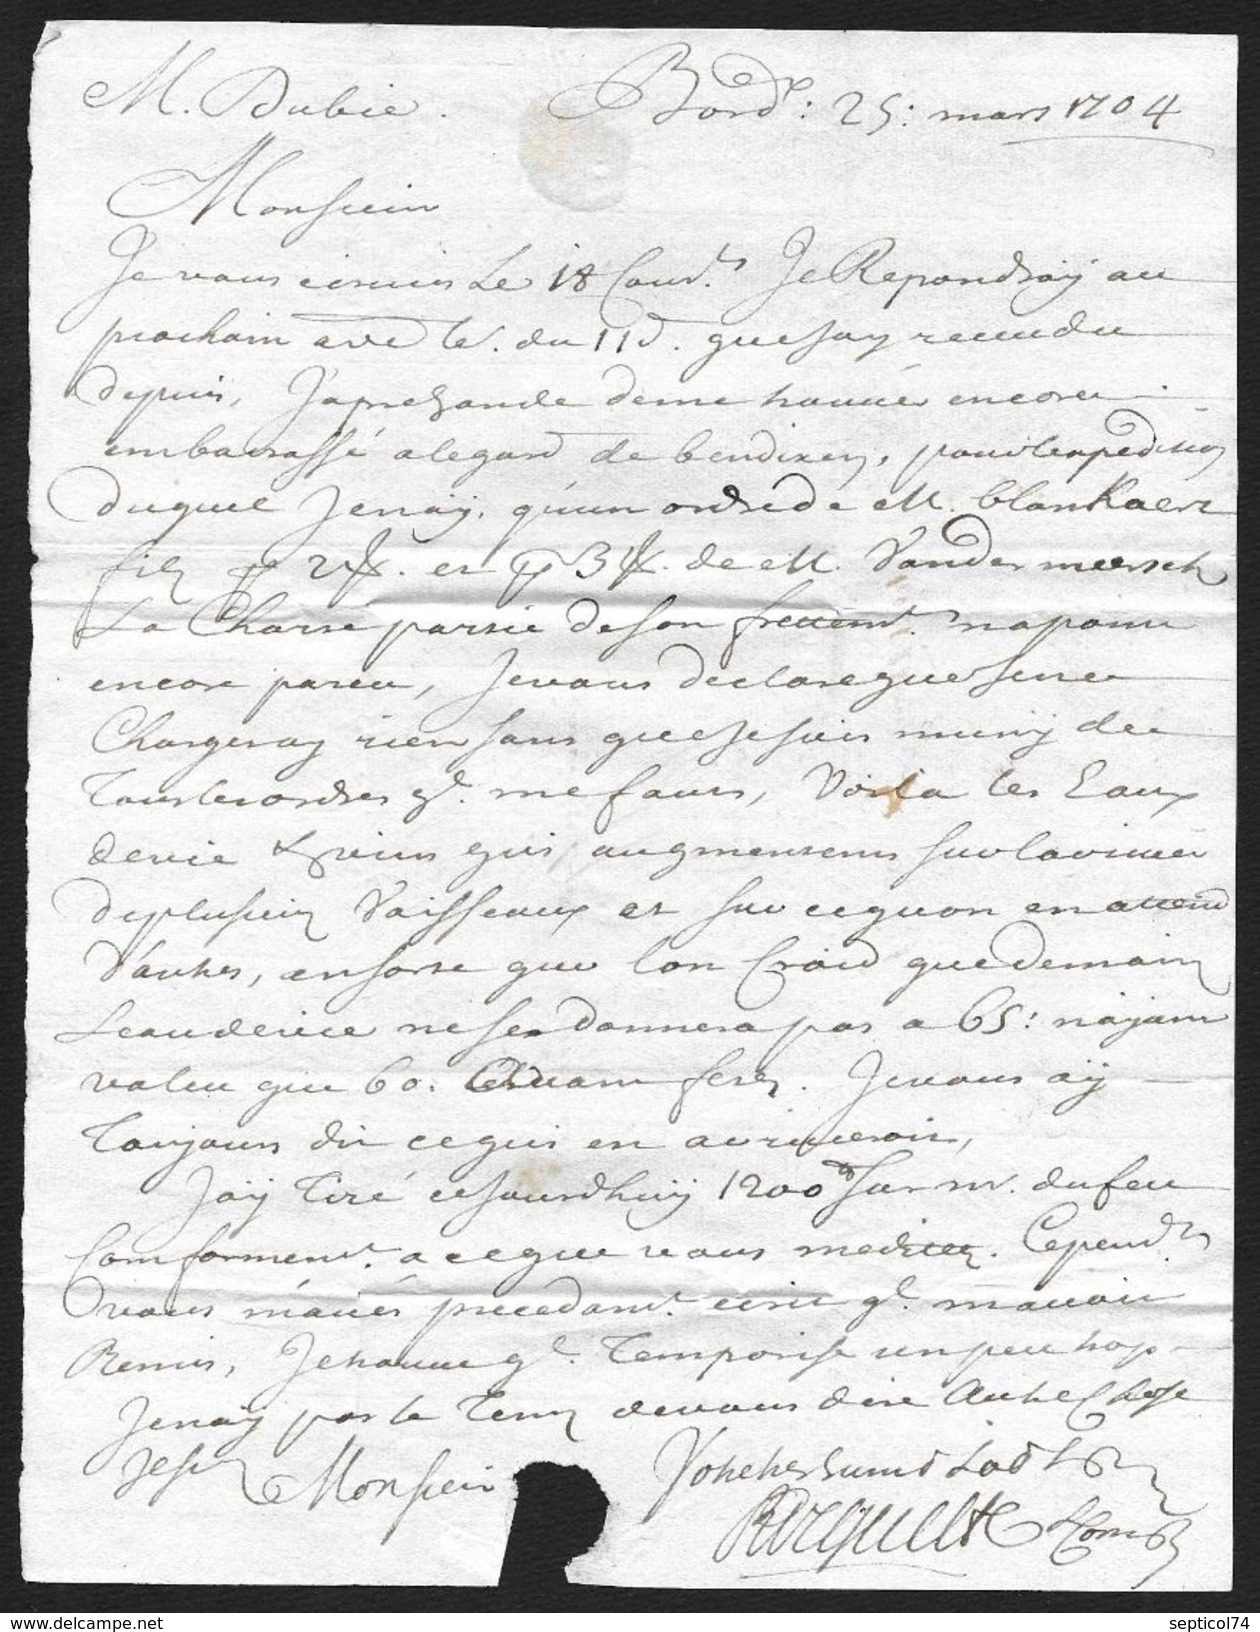 M. Dubie. Bord.x: 25: mars 1704
Monsieur
Je vous écrivis Le 18 Cour.t Je Repondray au
prochain avec la v. du 11 d. que jay receu du
depuis, J'aprehande deme trouver encore
embarrassé alegard de bendixen, pour lexpedition
duquel Jenay, qu'un ordre de M. blankaert
fils p 2 et p 3 de M. Vandermeersch
La Charte partie de son frettem.t na point
encore pareu, Jevous declare que Jene
Chargeray rien sans que je sois muny de
Tous les ordres q.l me faut, Voila les Eaux
devie & vins qui augmentent sur larrivée
de plusieurs Vaisseaux et sur ce quon en attend
d'autres, en sorte que lon Croid que demain
Leau de vie ne se donnera pas a 65: n'ayant
valeu que 60. avant feste. Jevous ay
Toujours dit ce qui en arriveroit,
Jay Tiré ce Jourdhuy 1200 Sur M. dufeu
Conformem.t a ce que vous me dittes. Cepend.t
vous m'aviés precedam.t écrit q.l m'avoit
Remis, Je trouve q.l Temporise un peu trop
Jenay pas le Tems de vous dire Autre Chose
Je suis Monsieur Votre tres humb
Serv
septicol74